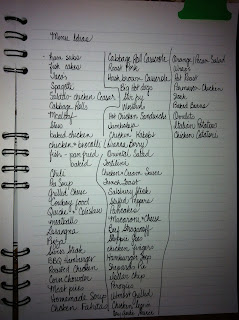 Menu Ideas
- ham subs
- fish cakes
- Tacos
- Spagetti
- Salads - chicken Ceasar
- Cabbage Rolls
- Meatloaf
- Stew
- baked chicken
- chicken & broccoli
- fish - pan fried
baked
- Chili
- Pea Soup
- Grilled Cheese
- Turkey food
- Quiche & Coleslaw
- meatballs
- Lasagna
- Pizza
- Swiss Steak
- BBQ Hamburger
- Roasted Chicken
- Corn Chowder
- Meat pies
- Homemade Soup
- Chicken Fahitas
Cabbage Roll Casserole
Roast Pork
Hash brown Casserole
Big Hot dogs
Stir fry
Hot Chicken Sandwichs
Jambalaya
Chicken Kabobs
Oriental Salad
Chicken & Cream Sauce
French Toast
Salisbury Steak
Stuffed Peppers
Pancakes
Macaroni & Cheese
Beef Stroganoff
Sloppy Joes
chicken fingers
Hamburger Soup
Shepards Pie
Italian
Perogies
Wonton
Chicken legs in
Orange/Pecan Salad
Wraps
Pot Roast
Parmesan Chicken
Steak
Baked Beans
Omelets
Italian Potatoes
Chicken